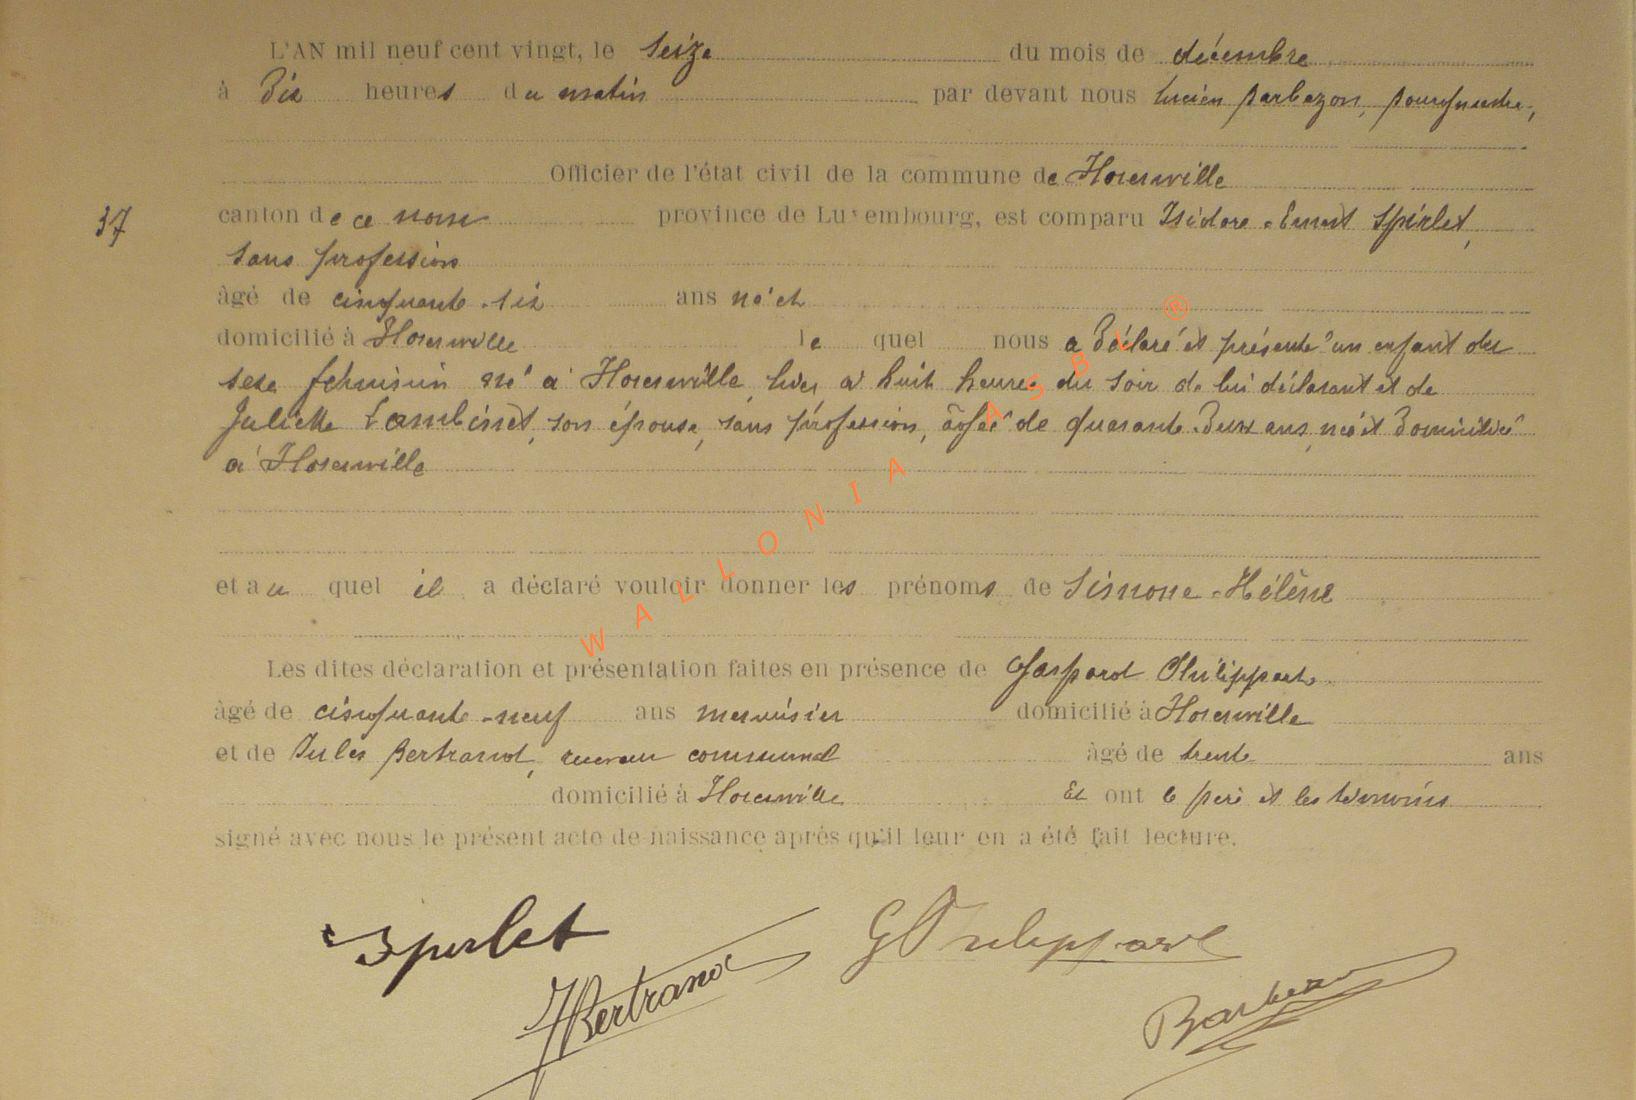 L'AN mil neuf cent vingt, le seize du mois de décembre
à dix heures du matin par devant nous Lucien Barbazon, bourgmestre,
Officier de l'état civil de la commune de Hosenville
37
canton de ce nom province de Luxembourg, est comparu Isidore-Ernest Spirlet,
sans profession
âgé de cinquante-six ans né et
domicilié à Hosenville lequel nous a déclaré et présenté un enfant du
sexe féminin né à Hosenville, hier, à huit heures du soir de lui déclarant et de
Juliette Lambinet, son épouse, sans profession, âgée de quarante-deux ans, née et domiciliée
à Hosenville
et au quel il a déclaré vouloir donner les prénoms de Simone-Hélène
Les dites déclaration et présentation faites en présence de Gaspard Philippart
âgé de cinquante-neuf ans menuisier domicilié à Hosenville
et de Jules Bertrand, communal âgé de trente ans
domicilié à Hosenville Et ont le père et les témoins
signé avec nous le présent acte de naissance après qu'il leur en a été fait lecture.
Spirlet
GPhilippart
JBertrand
Barbazon
WALLONIA ASBL ®